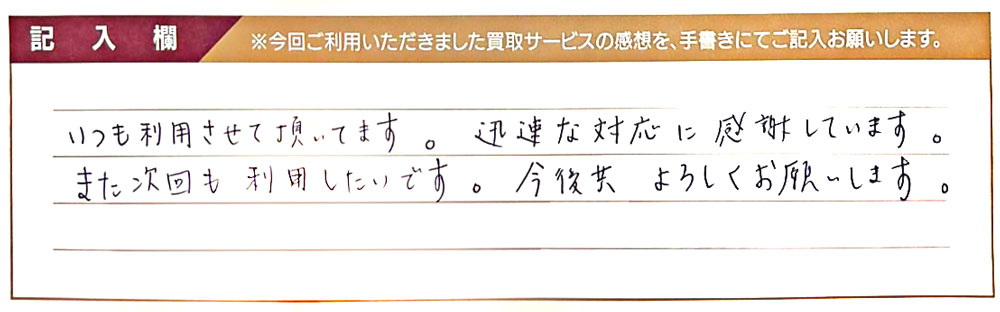 記入欄
※今回ご利用いただきました買取サービスの感想を、手書きにてご記入お願いします。
いつも利用させて頂いてます。迅速な対応に感謝しています。
また次回も利用したいです。今後共よろしくお願いします。